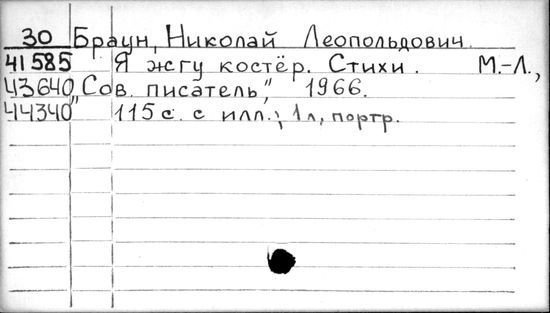 30 Браун, Николай Леопольдович.
41585 Я жгу костёр. Стихи. М.-Л.,
43640 „Сов. писатель", 1966.
44340 115 с. с илл.; 1 л, портр.